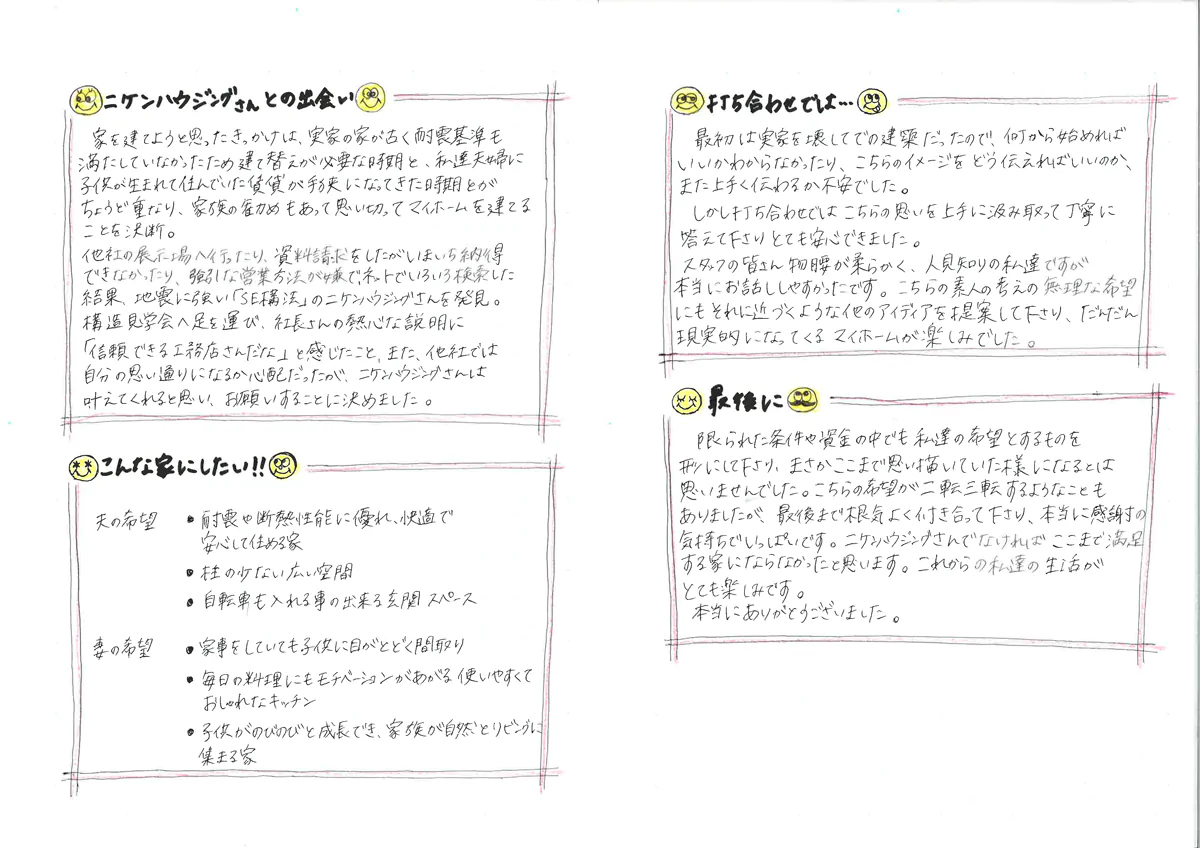 ニケンハウジングさんとの出会い
家を建てようと思ったきっかけは、実家の家が古く耐震基準も
満たしていなかったため建て替えが必要な時期と、私達夫婦に
子供が生まれて住んでいた賃貸が手狭になってきた時期とが
ちょうど重なり、家族の勧めもあって思い切ってマイホームを建てる
ことを決断。
他社の展示場へ行ったり、資料請求をしたがいまいち納得
できなかったり、強引な営業方法が嫌で、ネットでいろいろ検索した
結果、地震に強い「SE構法」のニケンハウジングさんを発見。
構造見学会へ足を運び、社長さんの熱心な説明に
「信頼できる工務店さんだな」と感じたこと、また、他社では
自分の思い通りになるか心配だったが、ニケンハウジングさんは
叶えてくれると思い、お願いすることに決めました。
こんな家にしたい!!
夫の希望 ● 耐震や断熱性能に優れ、快適で
安心して住める家
● 柱の少ない広い空間
● 自転車も入れる事の出来る玄関スペース
妻の希望 ● 家事をしていても子供に目がとどく間取り
● 毎日の料理にもモチベーションがあがる使いやすくて
おしゃれなキッチン
● 子供がのびのびと成長でき、家族が自然とリビングに
集まる家
打ち合わせでは…
最初は実家を壊してでの建築だったので、何から始めれば
いいかわからなかったり、こちらのイメージをどう伝えればいいのか、
また上手く伝わるか不安でした。
しかし打ち合わせではこちらの思いを上手に汲み取って丁寧に
答えて下さりとても安心できました。
スタッフの皆さん物腰が柔らかく、人見知りの私達ですが
本当にお話ししやすかったです。こちらの素人の考えの無理な希望
にもそれに近づくような他のアイディアを提案して下さり、だんだん
現実的になってくるマイホームが楽しみでした。
最後に
限られた条件や資金の中でも私達の希望とするものを
形にして下さり、まさかここまで思い描いていた様になるとは
思いませんでした。こちらの希望が二転三転するようなことも
ありましたが、最後まで根気よく付き合って下さり、本当に感謝の
気持ちでいっぱいです。ニケンハウジングさんでなければここまで満足
する家にならなかったと思います。これからの私達の生活が
とても楽しみです。
本当にありがとうございました。